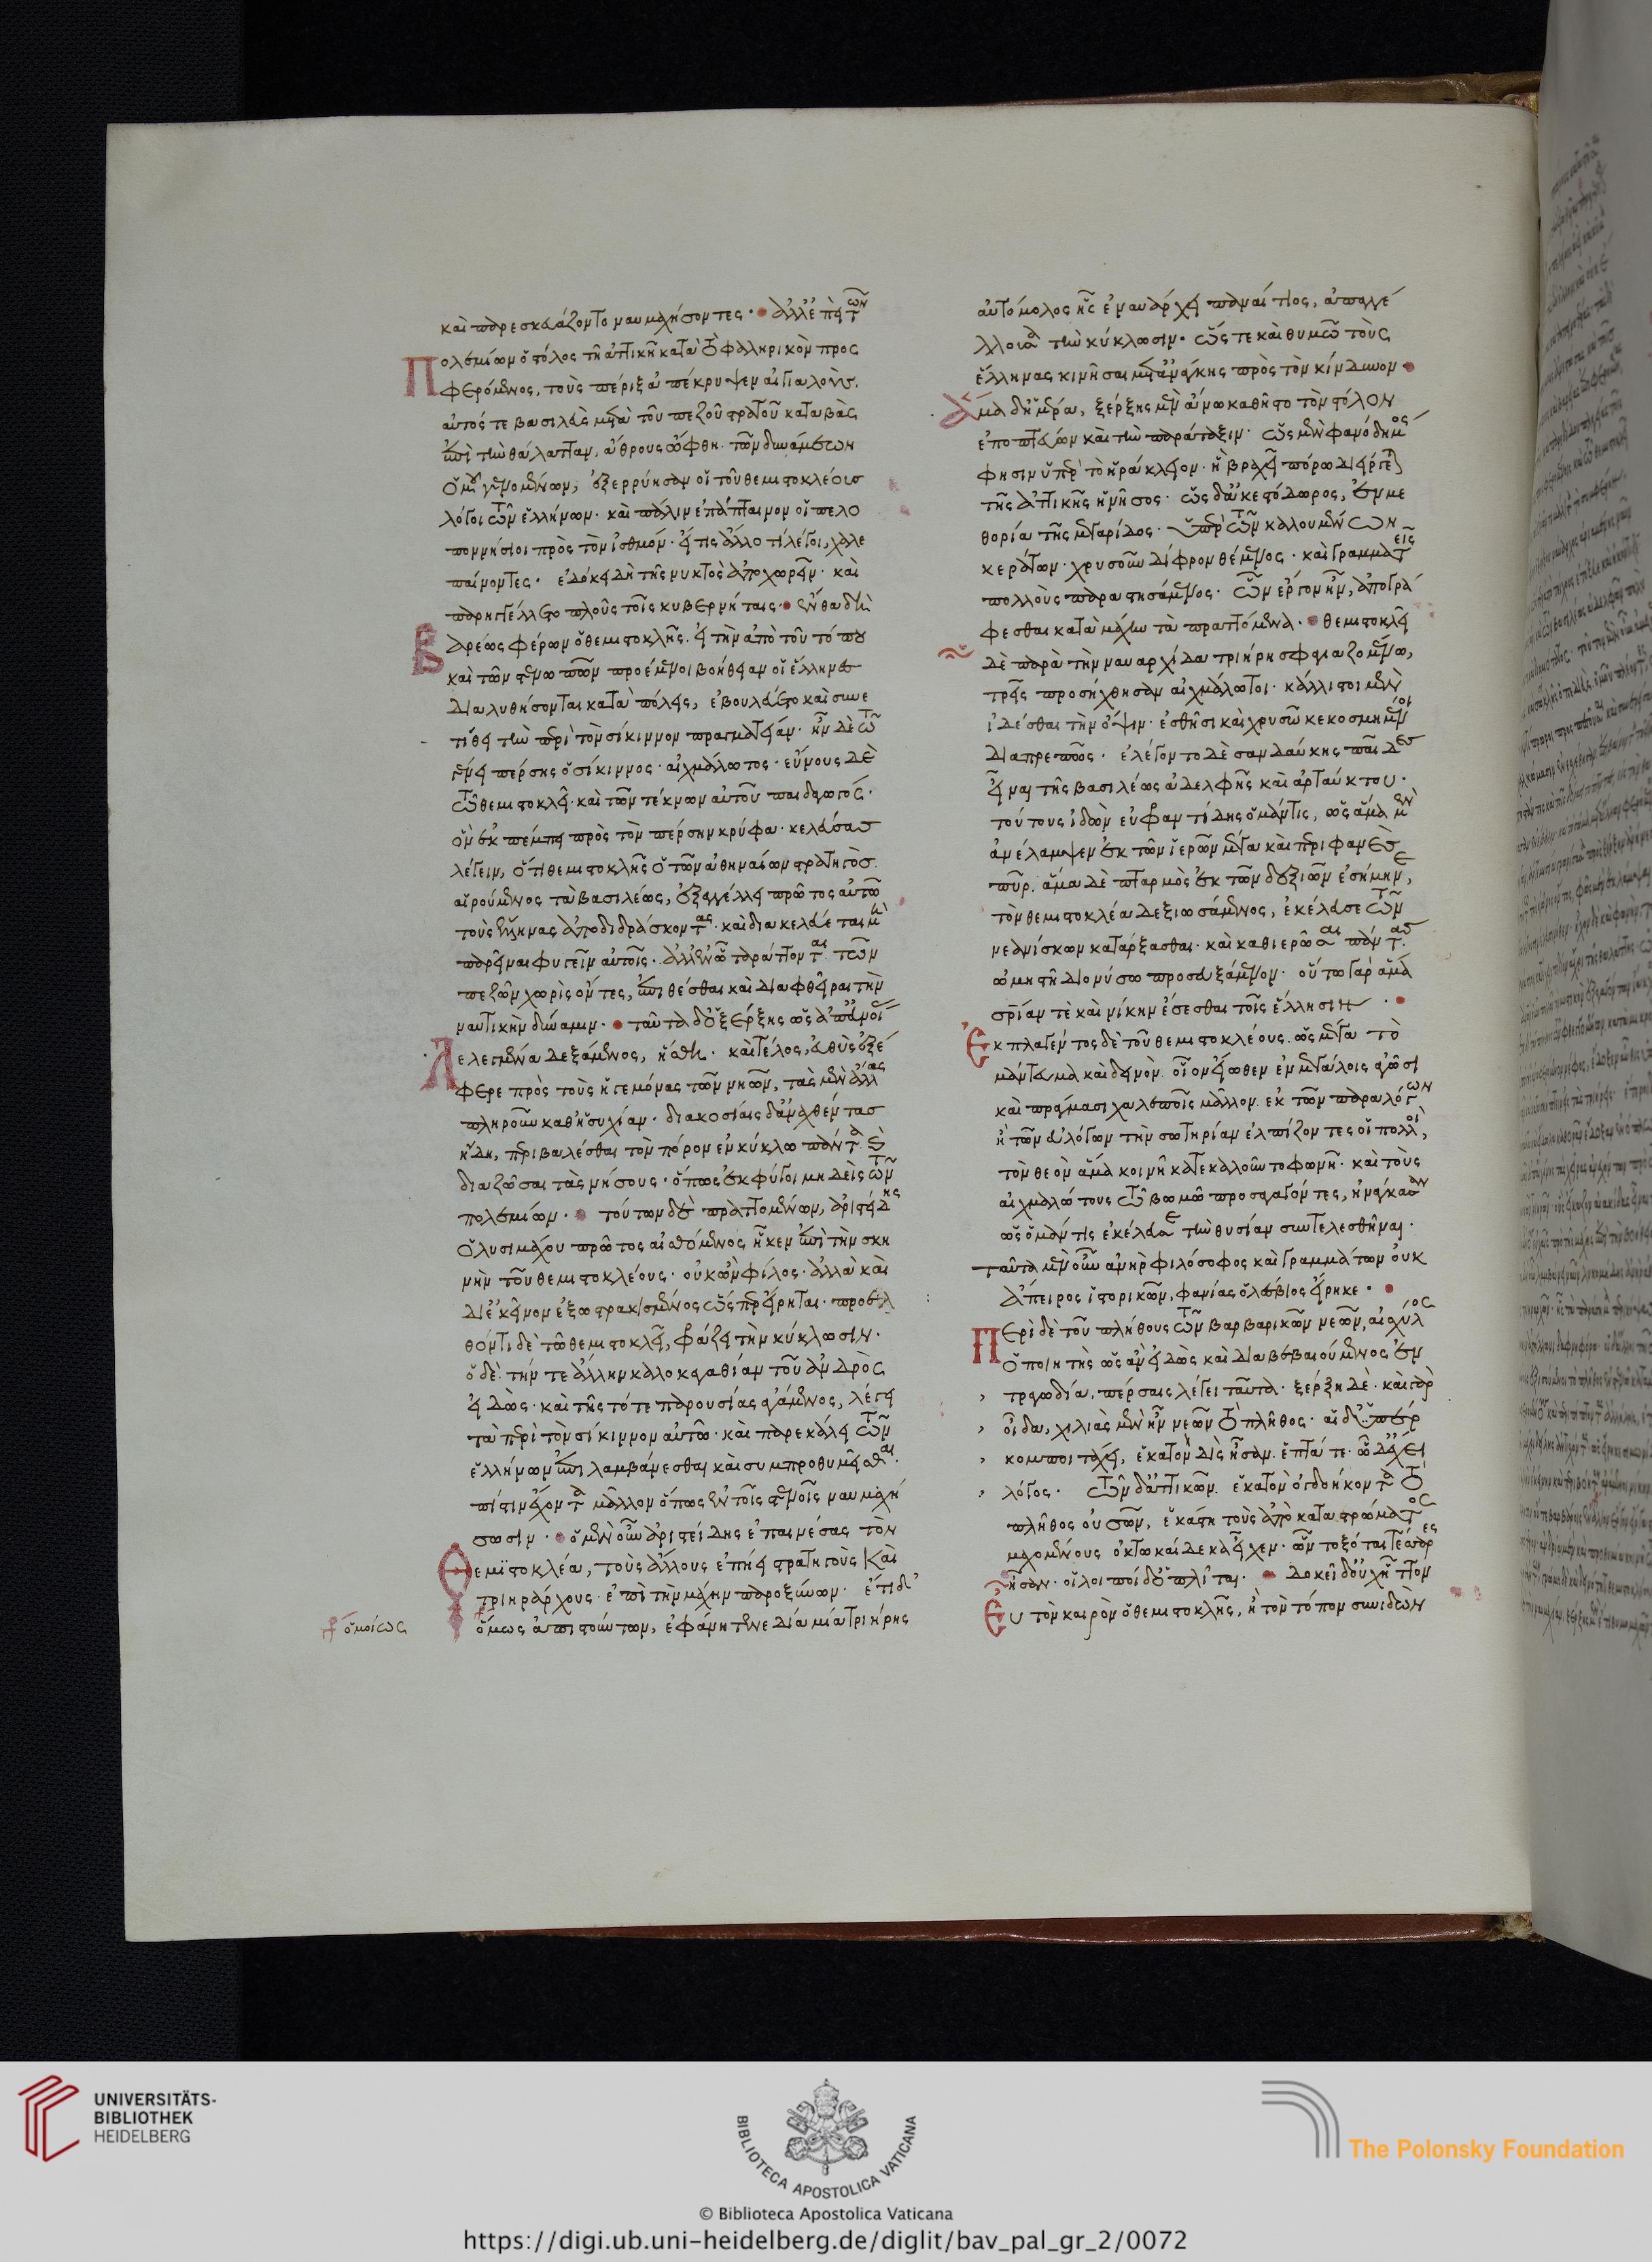 καὶ παρεσκευάζοντο ναυμαχήσοντες· ἀλλ' ἐπεὶ τῶν
Πολεμίων ὁ στόλος τῆ ἀττικῆ κατὰ τὸ φαληρικὸν προς
φερόμενος, τοὺς πέριξ ἀπέκρυψεν αἰγιαλοὺς.
αὐτός τε βασιλεὺς μετὰ τοῦ πεζοῦ στρατοῦ καταβὰς
ἐπὶ τὴν θάλατταν, ἄθρους ὤφθη· τῶν δυνάμεων
ὁμοῦ γενομένων, ἐξερρύησαν οἱ τοῦ θεμιστοκλέους
λόγοι τῶν ἑλλήνων· καὶ πάλιν ἐπάπταινον οἱ πελο
πονήσιοι πρὸς τὸν ἰσθμόν· εἴ τις ἄλλο τι λέγοι, χαλε
παίνοντες· ἐδόκει δὴ τῆς νυκτὸς ἀποχωρεῖν· καὶ
παρηγγέλλετο πλοῦς τοῖς κυβερνήταις· ἔνθα δὴ
Βαρέως φέρων ὁ θεμιστοκλῆς· εἰ τὴν ἀπὸ τοῦ τόπου
καὶ τῶν στενωπῶν προέμενοι βοήθειαν οἱ ἕλληνες
διαλυθήσονται κατὰ πόλεις, ἐβουλεύετο καὶ συνε
τίθει τὴν περὶ τὸν σίκιννον πραγματείαν· ἦν δὲ τῶ
γένει πέρσης ὁ σίκιννος· αἰχμάλωτος· εὔνους δὲ
τῶ θεμιστοκλεῖ· καὶ τῶν τέκνων αὐτοῦ παιδαγωγός·
ὃν ἐκπέμπει πρὸς τὸν πέρσην κρύφα· κελεύσας
λέγειν, ὅτι θεμιστοκλῆς ὁ τῶν ἀθηναίων στρατηγὸς
αἱρούμενος τὰ βασιλέως, ἐξαγγέλλει πρῶτος αὐτῶ
τοὺς ἕλληνας ἀποδιδράσκοντας· καὶ διακελεύεται μὴ
παρεῖναι φυγεῖν αὐτοῖς· ἀλλ' ἐν ὧ ταράττονται τῶν
πεζῶν χωρὶς ὄντες, ἐπιθέσθαι καὶ διαφθεῖραι τὴν
ναυτικὴν δύναμιν· ταῦτα δ' ὁ ξέρξης ὡς ἀπ' εὐνοί
Λελεγμένα δεξάμενος, ἥσθη· καὶ τέλος, εὐθὺς ἐξέ
φερε πρὸς τοὺς ἡγεμόνας τῶν νηῶν, τὰς μὲν ἄλλας
πληροῦν καθ' ἡσυχίαν· διακοσίαις δ' ἀναχθέντας
ἤδη, περιβαλέσθαι τὸν πόρον ἐν κύκλω πάντα καὶ
διαζῶσαι τὰς νήσους· ὅπως ἐκφύγοι μηδεὶς τῶν
πολεμίων· τούτων δὲ πραττομένων, ἀριστείδης
ὁ λυσιμάχου πρῶτος αἰσθόμενος, ἧκεν ἐπὶ τὴν σκη
νὴν τοῦ θεμιστοκλέους· οὐκ ὢν φίλος· ἀλλὰ καὶ
δι' ἐκεῖνον ἐξωστρακισμένος ὥσπερ εἴρηται· προσελ
θόντι δὲ τῶ θεμιστοκλεῖ, φράζει τὴν κύκλωσιν·
ὁ δὲ· τήν τε ἄλλην καλοκαγαθίαν τοῦ ἀνδρὸς
εἰδὼς· καὶ τῆς τότε παρουσίας ἀγάμενος, λέγει
τὰ περὶ τὸν σίκιννον αὐτῶ· καὶ παρεκάλει τῶν
ἑλλήνων ἐπιλαμβάνεσθαι καὶ συμπροθυμεῖσθαι·
πίστιν ἔχοντα μᾶλλον ὅπως ἐν τοῖς στενοῖς ναυμαχή
σωσιν· ὁ μὲν οὖν ἀριστείδης ἐπαινέσας τὸν
Θεμιστοκλέα, τοὺς ἄλλους ἐπήει στρατηγοὺς καὶ
τριηράρχους· ἐπὶ τὴν μάχην παροξύνων· ἔτι δ'
ὅμως ἀπιστούντων, ἐφάνη τηνεδία μία τριήρης
ὁμοίως
αὐτόμολος ἧς ἐναυάρχει παναίτιος, ἀπαγγέ
λλουσα τὴν κύκλωσιν· ὥστε καὶ θυμῶ τοὺς
ἕλληνας κινῆσαι μετὰ ἀνάγκης πρὸς τὸν κίνδυνον
Ἅμα δὴ ἡμέρα, ξέρξης μὲν ἄνω καθῆστο τὸν στόλον
ἐποπτεύων καὶ τὴν παράταξιν· ὡς μὲν φανόδημος
φησιν ὑπὲρ τὸ ἡράκλειον· ἧ βραχεῖ πόρω διείργεται
τῆς ἀττικῆς ἡ νῆσος· ὡς δ' ἀκεστόδωρος, ἐν με
θορία τῆς μεγαρίδος· ὑπὲρ τῶν καλουμένων
κεράτων· χρυσοῦν δίφρον θέμενος· καὶ γραμματεῖς
πολλοὺς παραστησάμενος· ὧν ἔργον ἦν, ἀπογρά
φεσθαι κατὰ μάχην τὰ πραττόμενα· θεμιστοκλεῖ
δὲ παρὰ τὴν ναυαρχίδα τριήρη σφαγιαζομένω,
τρεῖς προσήχθησαν αἰχμάλωτοι· κάλλιστοι μὲν
ἰδέσθαι τὴν ὄψιν· ἐσθῆσι καὶ χρυσῶ κεκοσμημένοι
διαπρεπῶς· ἐλέγοντο δὲ σανδαύκης παῖδες
εἶναι τῆς βασιλέως ἀδελφῆς καὶ ἀρταύκτου·
τούτους ἰδὼν εὐφραντίδης ὁ μάντις, ὡς ἅμα μὲν
ἀνέλαμψεν ἐκ τῶν ἱερῶν μέγα καὶ περιφανὲς
πῦρ· ἅμα δὲ πταρμὸς ἐκ τῶν δεξιῶν ἐσήμηνε,
τὸν θεμιστοκλέα δεξιωσάμενος, ἐκέλευσε τῶν
νεανίσκων κατάρξασθαι· καὶ καθιερῶσαι πάντας
ὠμηστῆ διονύσω προσευξάμενον· οὕτω γὰρ ἅμα
σωτηρίαν τὲ καὶ νίκην ἔσεσθαι τοῖς ἕλλησιν
Ἐκπλαγέντος δὲ τοῦ θεμιστοκλέους, ὡς μέγα τὸ
μάντευμα καὶ δεινὸν· οἷον εἴωθεν ἐν μεγάλοις ἀγῶσι
καὶ πράγμασι χαλεποῖς μᾶλλον ἐκ τῶν παραλόγων
ἢ τῶν εὐλόγων τὴν σωτηρίαν ἐλπίζοντες οἱ πολλοὶ,
τὸν θεὸν ἅμα κοινῆ κατεκαλοῦντο φωνῆ· καὶ τοὺς
αἰχμαλώτους τῶ βωμῶ προσαγαγόντες, ἠνάγκασαν
ὡς ὁ μάντις ἐκέλευσε τὴν θυσίαν συντελεσθῆναι·
ταῦτα μὲν οὖν ἀνὴρ φιλόσοφος καὶ γραμμάτων οὐκ
ἄπειρος ἱστορικῶν, φανίας ὁ λέσβιος εἴρηκε·
Περὶ δὲ τοῦ πλήθους τῶν βαρβαρικῶν νεῶν, αἰσχύλος
ὁ ποιητὴς ὡς ἂν εἰδὼς καὶ διαβεβαιούμενος ἐν
τραγωδία, πέρσαις λέγει ταῦτα· ξέρξη δὲ· καὶ γὰρ
οἶδα, χιλιὰς μὲν ἦν νεῶν τὸ πλῆθος· αἱ δ' ὑπέρ
κομποι τάχει, ἑκατὸν δὶς ἦσαν· ἑπτά τε· ὧδ' ἔχει
λόγος· τῶν δ' ἀττικῶν ἑκατὸν ὀγδοήκοντα τὸ
πλῆθος οὐσῶν, ἑκάστη τοὺς ἀπὸ καταστρώματος
μαχομένους ὀκτωκαίδεκα εἶχεν· ὧν τοξόται τέσσαρες
ἦσαν· οἱ λοιποὶ δ' ὁπλῖται· δοκεῖ δ' οὐχ ἧττον
Εὖ τὸν καιρὸν ὁ θεμιστοκλῆς, ἢ τὸν τόπον συνιδὼν
UNIVERSITÄTS-
BIBLIOTHEK
HEIDELBERG
BIBLIOTECA APOSTOLICA VATICANA
The Polonsky Foundation
© Biblioteca Apostolica Vaticana
https://digi.ub.uni-heidelberg.de/diglit/bav_pal_gr_2/0072